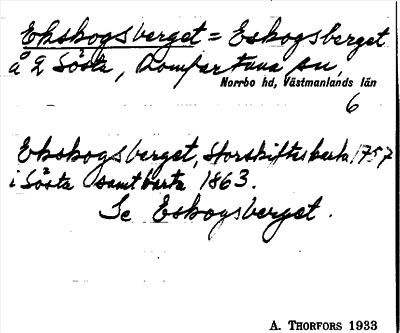 Ekskogsberget = Eskogsberget
å Sösta, Romfartuna sn,
Norrbo hd, Västmanlands län
6
Ekskogsberget, Storskifteskarta 1757
i Sösta samt karta 1863.
Se Eskogsberget.
A. THORFORS 1933